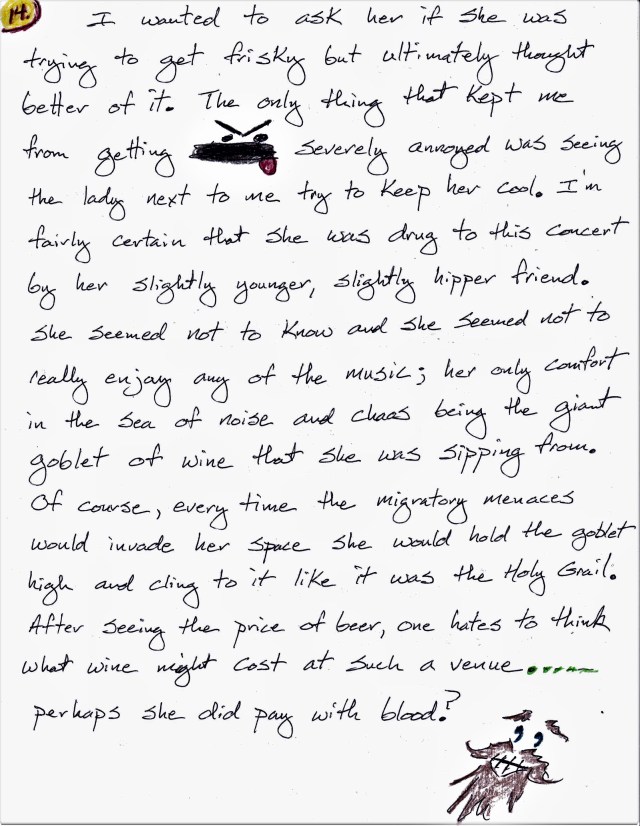 14.
I wanted to ask her if she was
trying to get frisky but ultimately thought
better of it. The only thing that kept me
from getting severely annoyed was seeing
the lady next to me try to keep her cool. I'm
fairly certain that she was drug to this concert
by her slightly younger, slightly hipper friend.
She seemed not to know and she seemed not to
really enjoy any of the music; her only comfort
in the sea of noise and chaos being the giant
goblet of wine that she was sipping from.
Of course, every time the migratory menaces
would invade her space she would hold the goblet
high and cling to it like it was the Holy Grail.
After seeing the price of beer, one hates to think
what wine might cost at such a venue.......
perhaps she did pay with blood.?